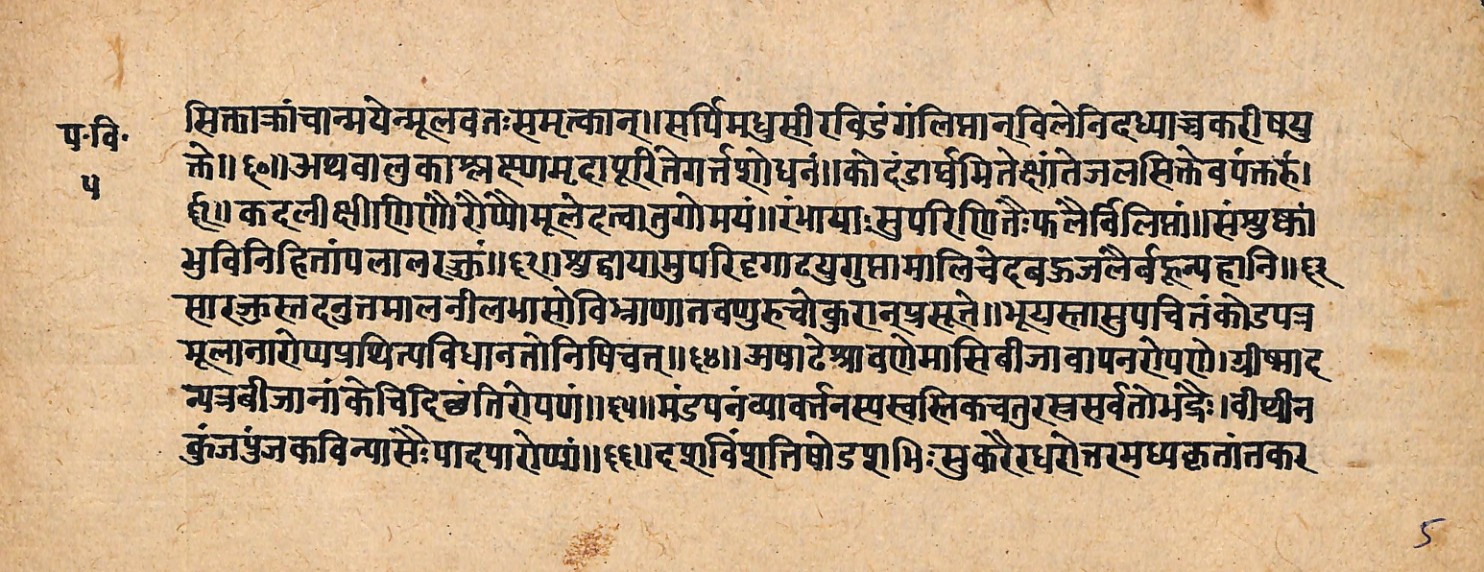 प॰वि॰
५
सिक्ताक्तांचान्मयेन्मूलवतःसमृत्कान्॥सर्पिमधुसीरविडंगंलिप्तान्विलेनिदध्याच्चकरीषयु
क्ते॥६०॥अथवालुकाश्लक्ष्णमृदापूरितेगर्त्तशोधनं॥कोदंडार्घमितेक्षांतेजलसिक्तेवपंक्तर्ह।
र्ह॥कदलीक्षीरिणिर्णैरोप्यौमूलेदत्वातुगोमयं॥रंभायाःसुपरिणितैःफलैर्विलिप्तां॥संशुष्कां
भुविनिहितांपलालरज्जुं॥६२॥श्रद्दायासुपरिदृगादयुगुप्तामालिचेदबऊजलैर्बहून्यहानि॥६३
सारज्जुस्तदनुत्तमालनीलभासोविभ्राणानवणुरुचोकुरान्प्रसूते॥भूयस्तासुपचितंकोडपत्र
मूलानारोप्यप्रथित्पविधानतोनिषिचत्॥६४॥अषाढेश्रावणेमासिबीजावापनरोपणे।ग्रीष्माद
न्यत्रबीजानांकेचिदिछंतिरोपणं॥६५॥मंडपनंव्यावर्त्तनस्यस्वस्तिकचतुरस्रसर्वतोभंद्रैः।वीथीन
कुंजपुंजकविन्यासैःपादपारोप्यां॥६६॥दशविंशतिषोडशभिःसुकरैरधरोत्तरमध्यकृतांतकर
5